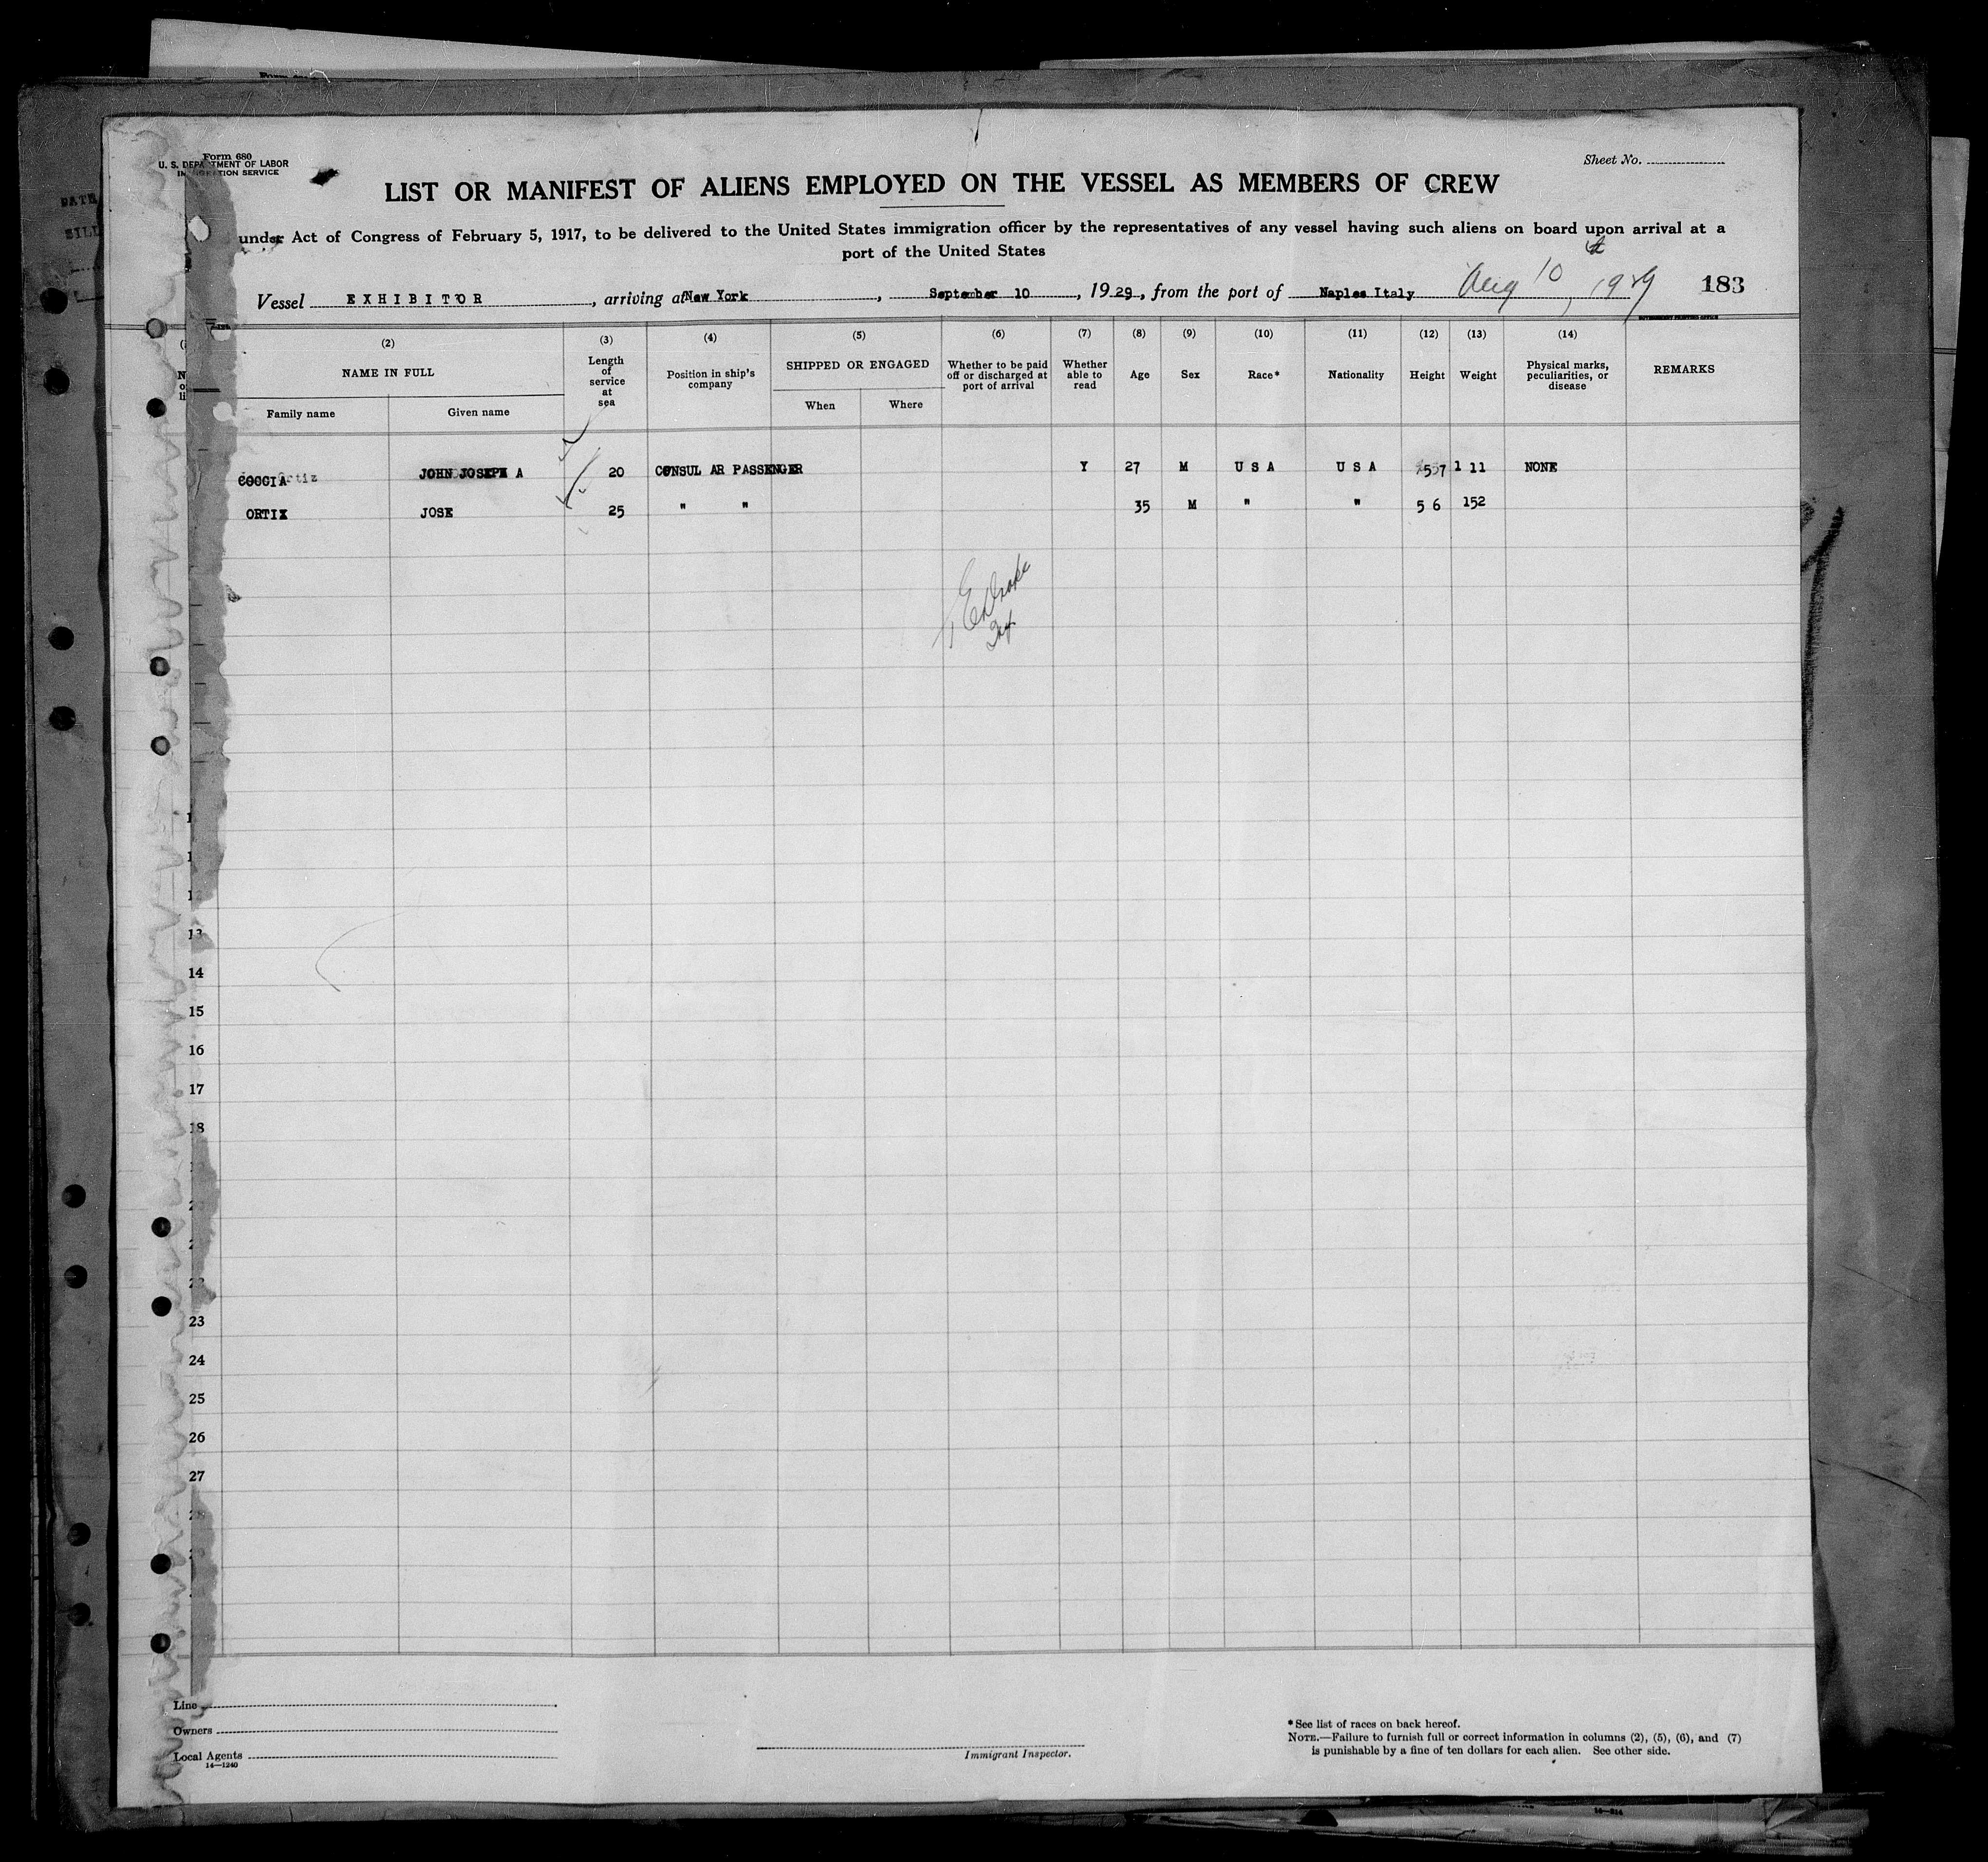 Form 680
U. S. DEPARTMENT OF LABOR
IMMIGRATION SERVICE
Sheet No.
LIST OR MANIFEST OF ALIENS EMPLOYED ON THE VESSEL AS MEMBERS OF CREW
under Act of Congress of February 5, 1917, to be delivered to the United States immigration officer by the representatives of any vessel having such aliens on board upon arrival at a
port of the United States
Vessel EXHIBITOR, arriving at New York, September 10, 1929, from the port of Naples Italy Aug 10 1929 183
(2) (3) (4) (5) (6) (7) (8) (9) (10) (11) (12) (13) (14)
NAME IN FULL Length of service at sea Position in ship's company SHIPPED OR ENGAGED Whether to be paid off or discharged at port of arrival Whether able to read Age Sex Race* Nationality Height Weight Physical marks, peculiarities, or disease REMARKS
Family name Given name When Where
COGGIA JOHN JOSEPH A 20 CONSUL AR PASSENGER Y 27 M U S A U S A 57 1 11 NONE
ORTIZ JOSE 25 " " 35 M " " 5 6 152
13
14
15
16
17
18
23
24
25
26
27
Line
Owners
Local Agents
14—1240
Immigrant Inspector.
*See list of races on back hereof.
NOTE.—Failure to furnish full or correct information in columns (2), (5), (6), and (7)
is punishable by a fine of ten dollars for each alien. See other side.